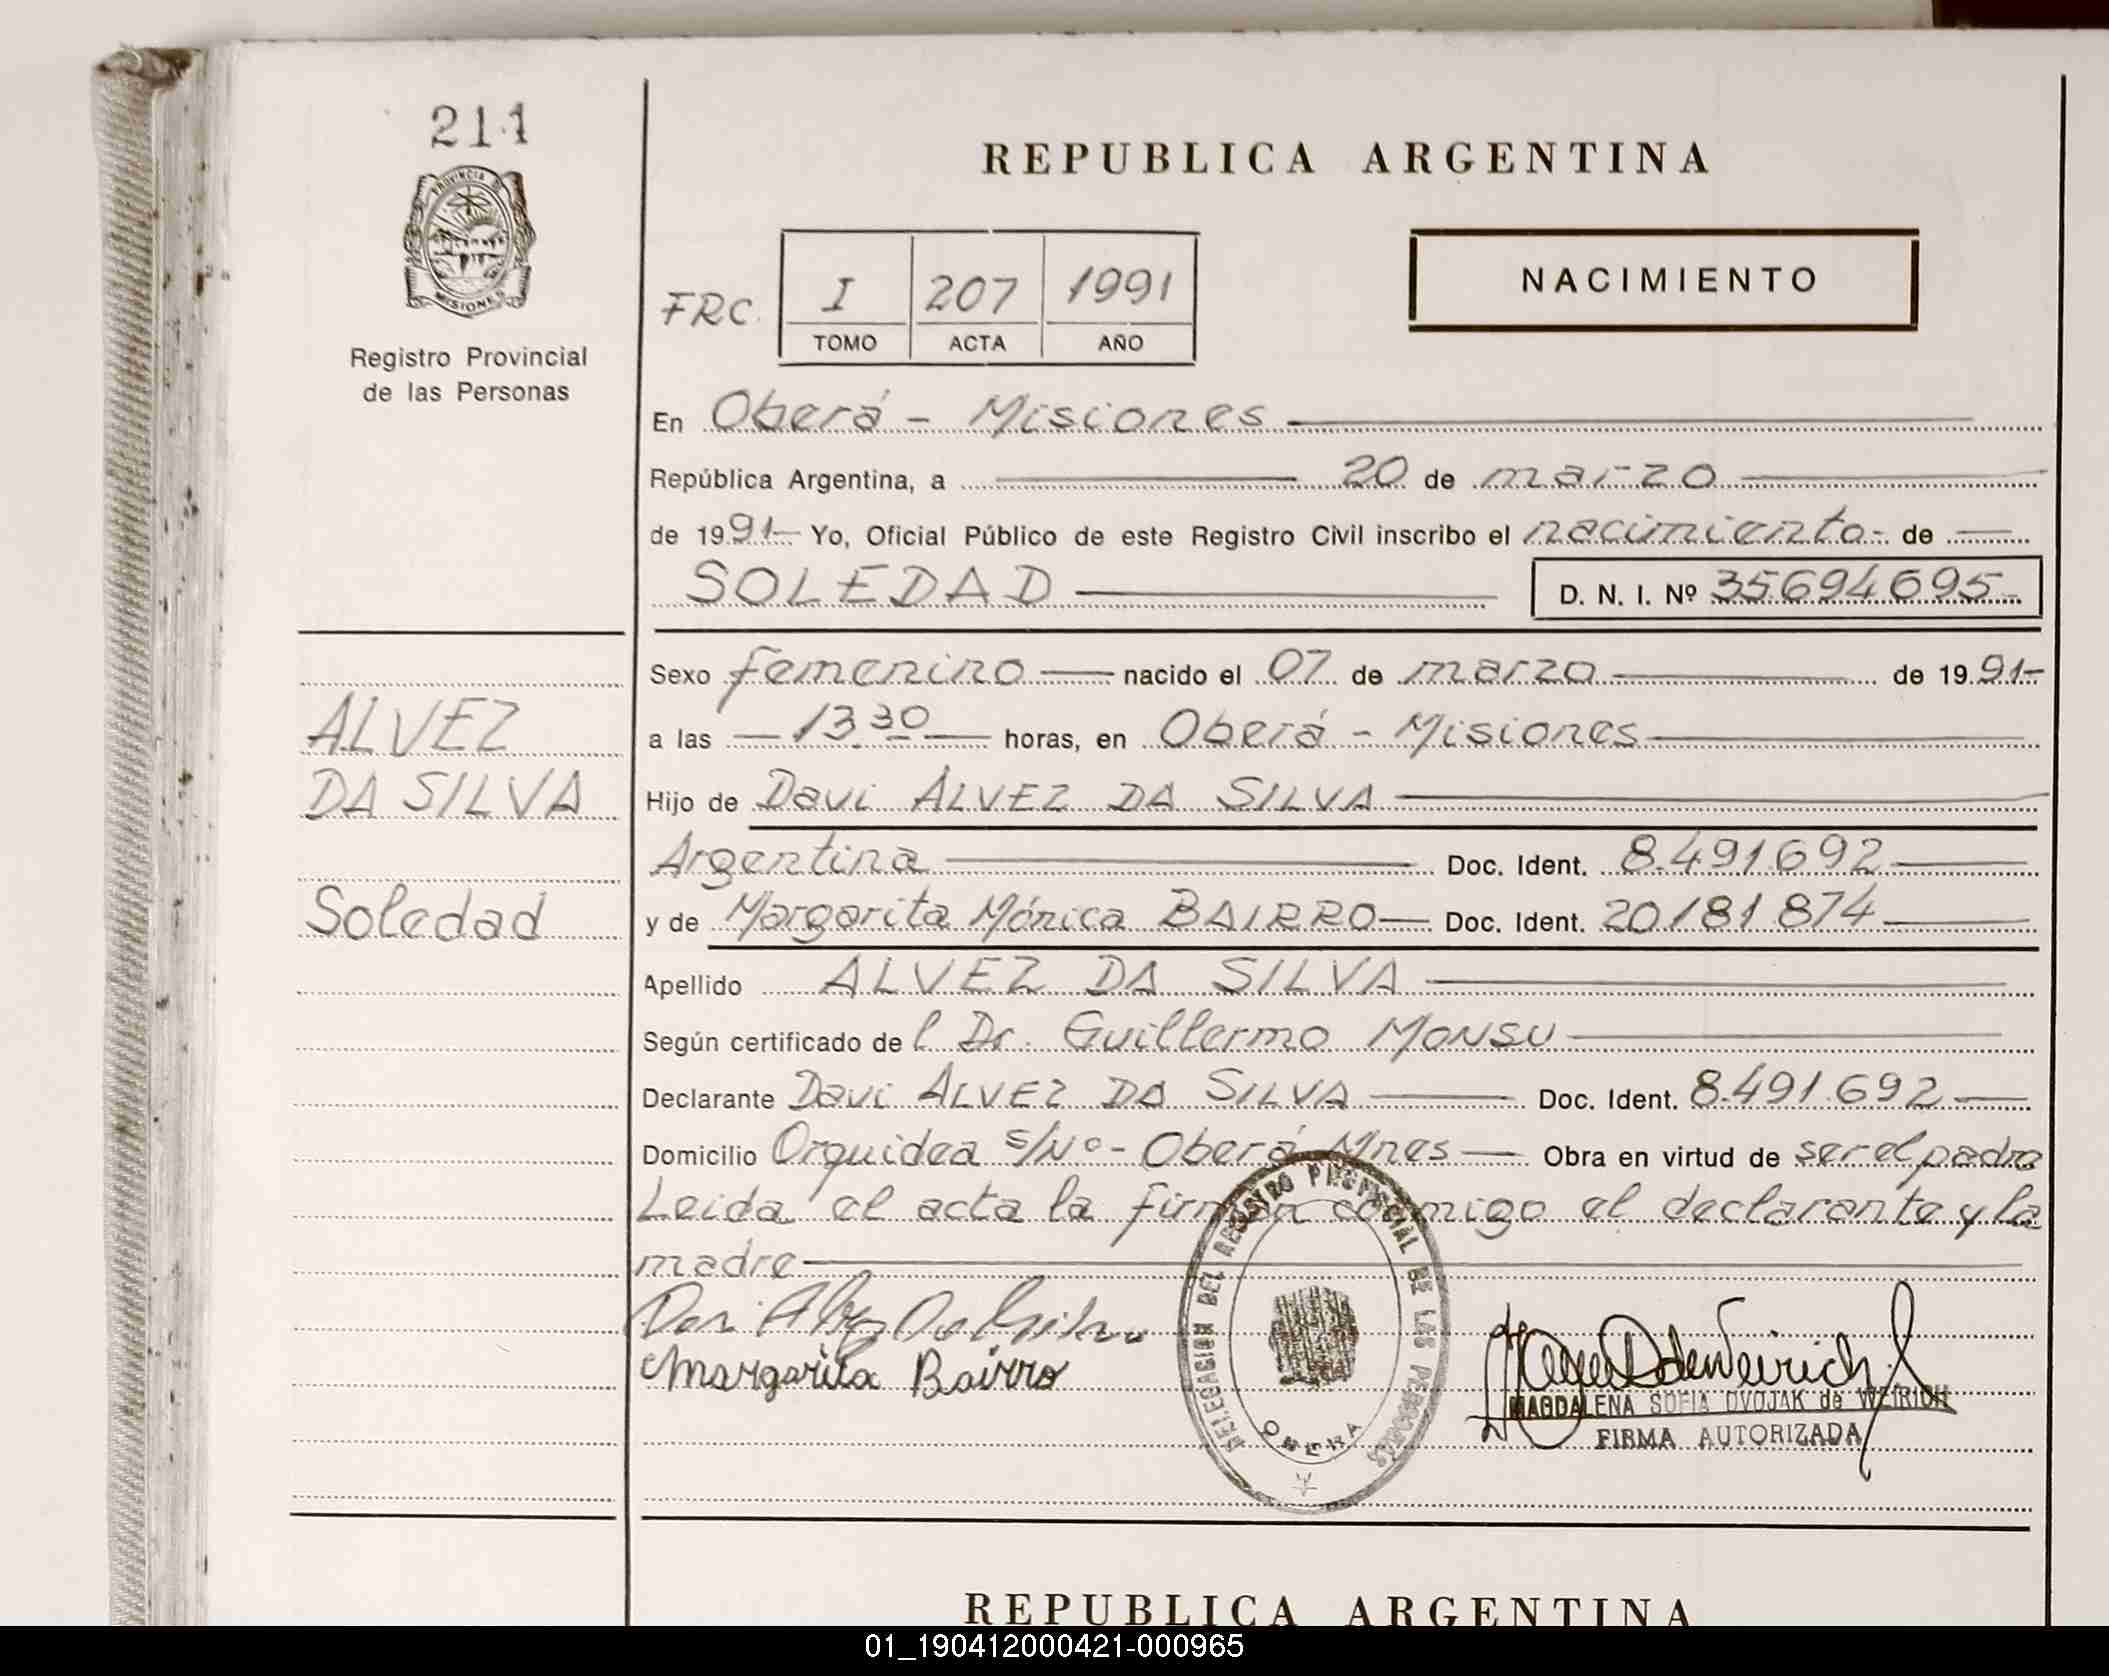 211
PROVINCIA DE
MISIONES
Registro Provincial
de las Personas
REPUBLICA ARGENTINA
NACIMIENTO
FRC I 207 1991
TOMO ACTA AÑO
En Oberá - Misiones
República Argentina, a 20 de marzo
de 1991- Yo, Oficial Público de este Registro Civil inscribo el nacimiento- de
SOLEDAD D. N. I. Nº 35694695-
Sexo femenino nacido el 07 de marzo de 1991-
ALVEZ
a las 13.30 horas, en Oberá - Misiones
DA SILVA
Hijo de Davi ALVEZ DA SILVA
Argentina Doc. Ident. 8.491.692
Soledad
y de Margarita Mónica BAIRRO Doc. Ident. 20.181.874
Apellido ALVEZ DA SILVA
Según certificado del Dr. Guillermo MONSU
Declarante Davi ALVEZ DA SILVA Doc. Ident. 8.491.692
Domicilio Orquidea s/Nº - Oberá Mnes Obra en virtud de ser el padre
Leida el acta la firman conmigo el declarante y la
madre
Margarita Bairro
DELEGACION DEL REGISTRO PROVINCIAL DE LAS PERSONAS
OBERA
MAGDALENA SOFIA DVOJAK de WEIRICH
FIRMA AUTORIZADA
REPUBLICA ARGENTINA
01_190412000421-000965